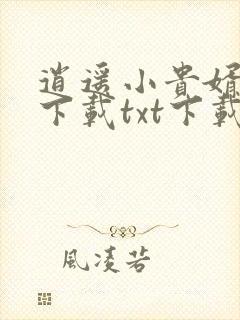 逍遥小貴婿
下載txt下載
風凌若